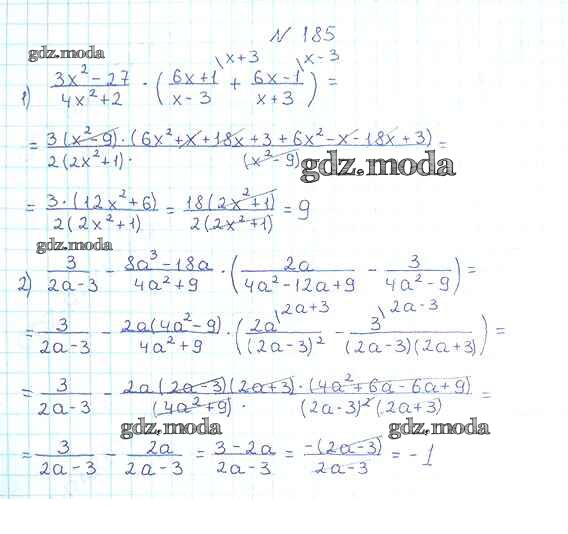 N 185
gdz.moda
1) (3x² - 27)/(4x² + 2) · ((6x+1)/(x-3) \x+3 + (6x-1)/(x+3) \x-3) =
= 3(x² - 9) · (6x² + x + 18x + 3 + 6x² - x - 18x + 3)/(2(2x² + 1) · (x² - 9)) =
gdz.moda
= 3 · (12x² + 6)/(2(2x² + 1)) = 18(2x² + 1)/(2(2x² + 1)) = 9
gdz.moda
2) 3/(2a-3) - (8a³ - 18a)/(4a² + 9) · (2a/(4a² - 12a + 9) - 3/(4a² - 9)) =
= 3/(2a-3) - 2a(4a² - 9)/(4a² + 9) · (2a \2a+3/(2a-3)² - 3 \2a-3/((2a-3)(2a+3))) =
= 3/(2a-3) - 2a(2a-3)(2a+3) · (4a² + 6a - 6a + 9)/((4a² + 9) · (2a-3)²(2a+3)) =
gdz.moda gdz.moda
= 3/(2a-3) - 2a/(2a-3) = (3-2a)/(2a-3) = -(2a-3)/(2a-3) = -1